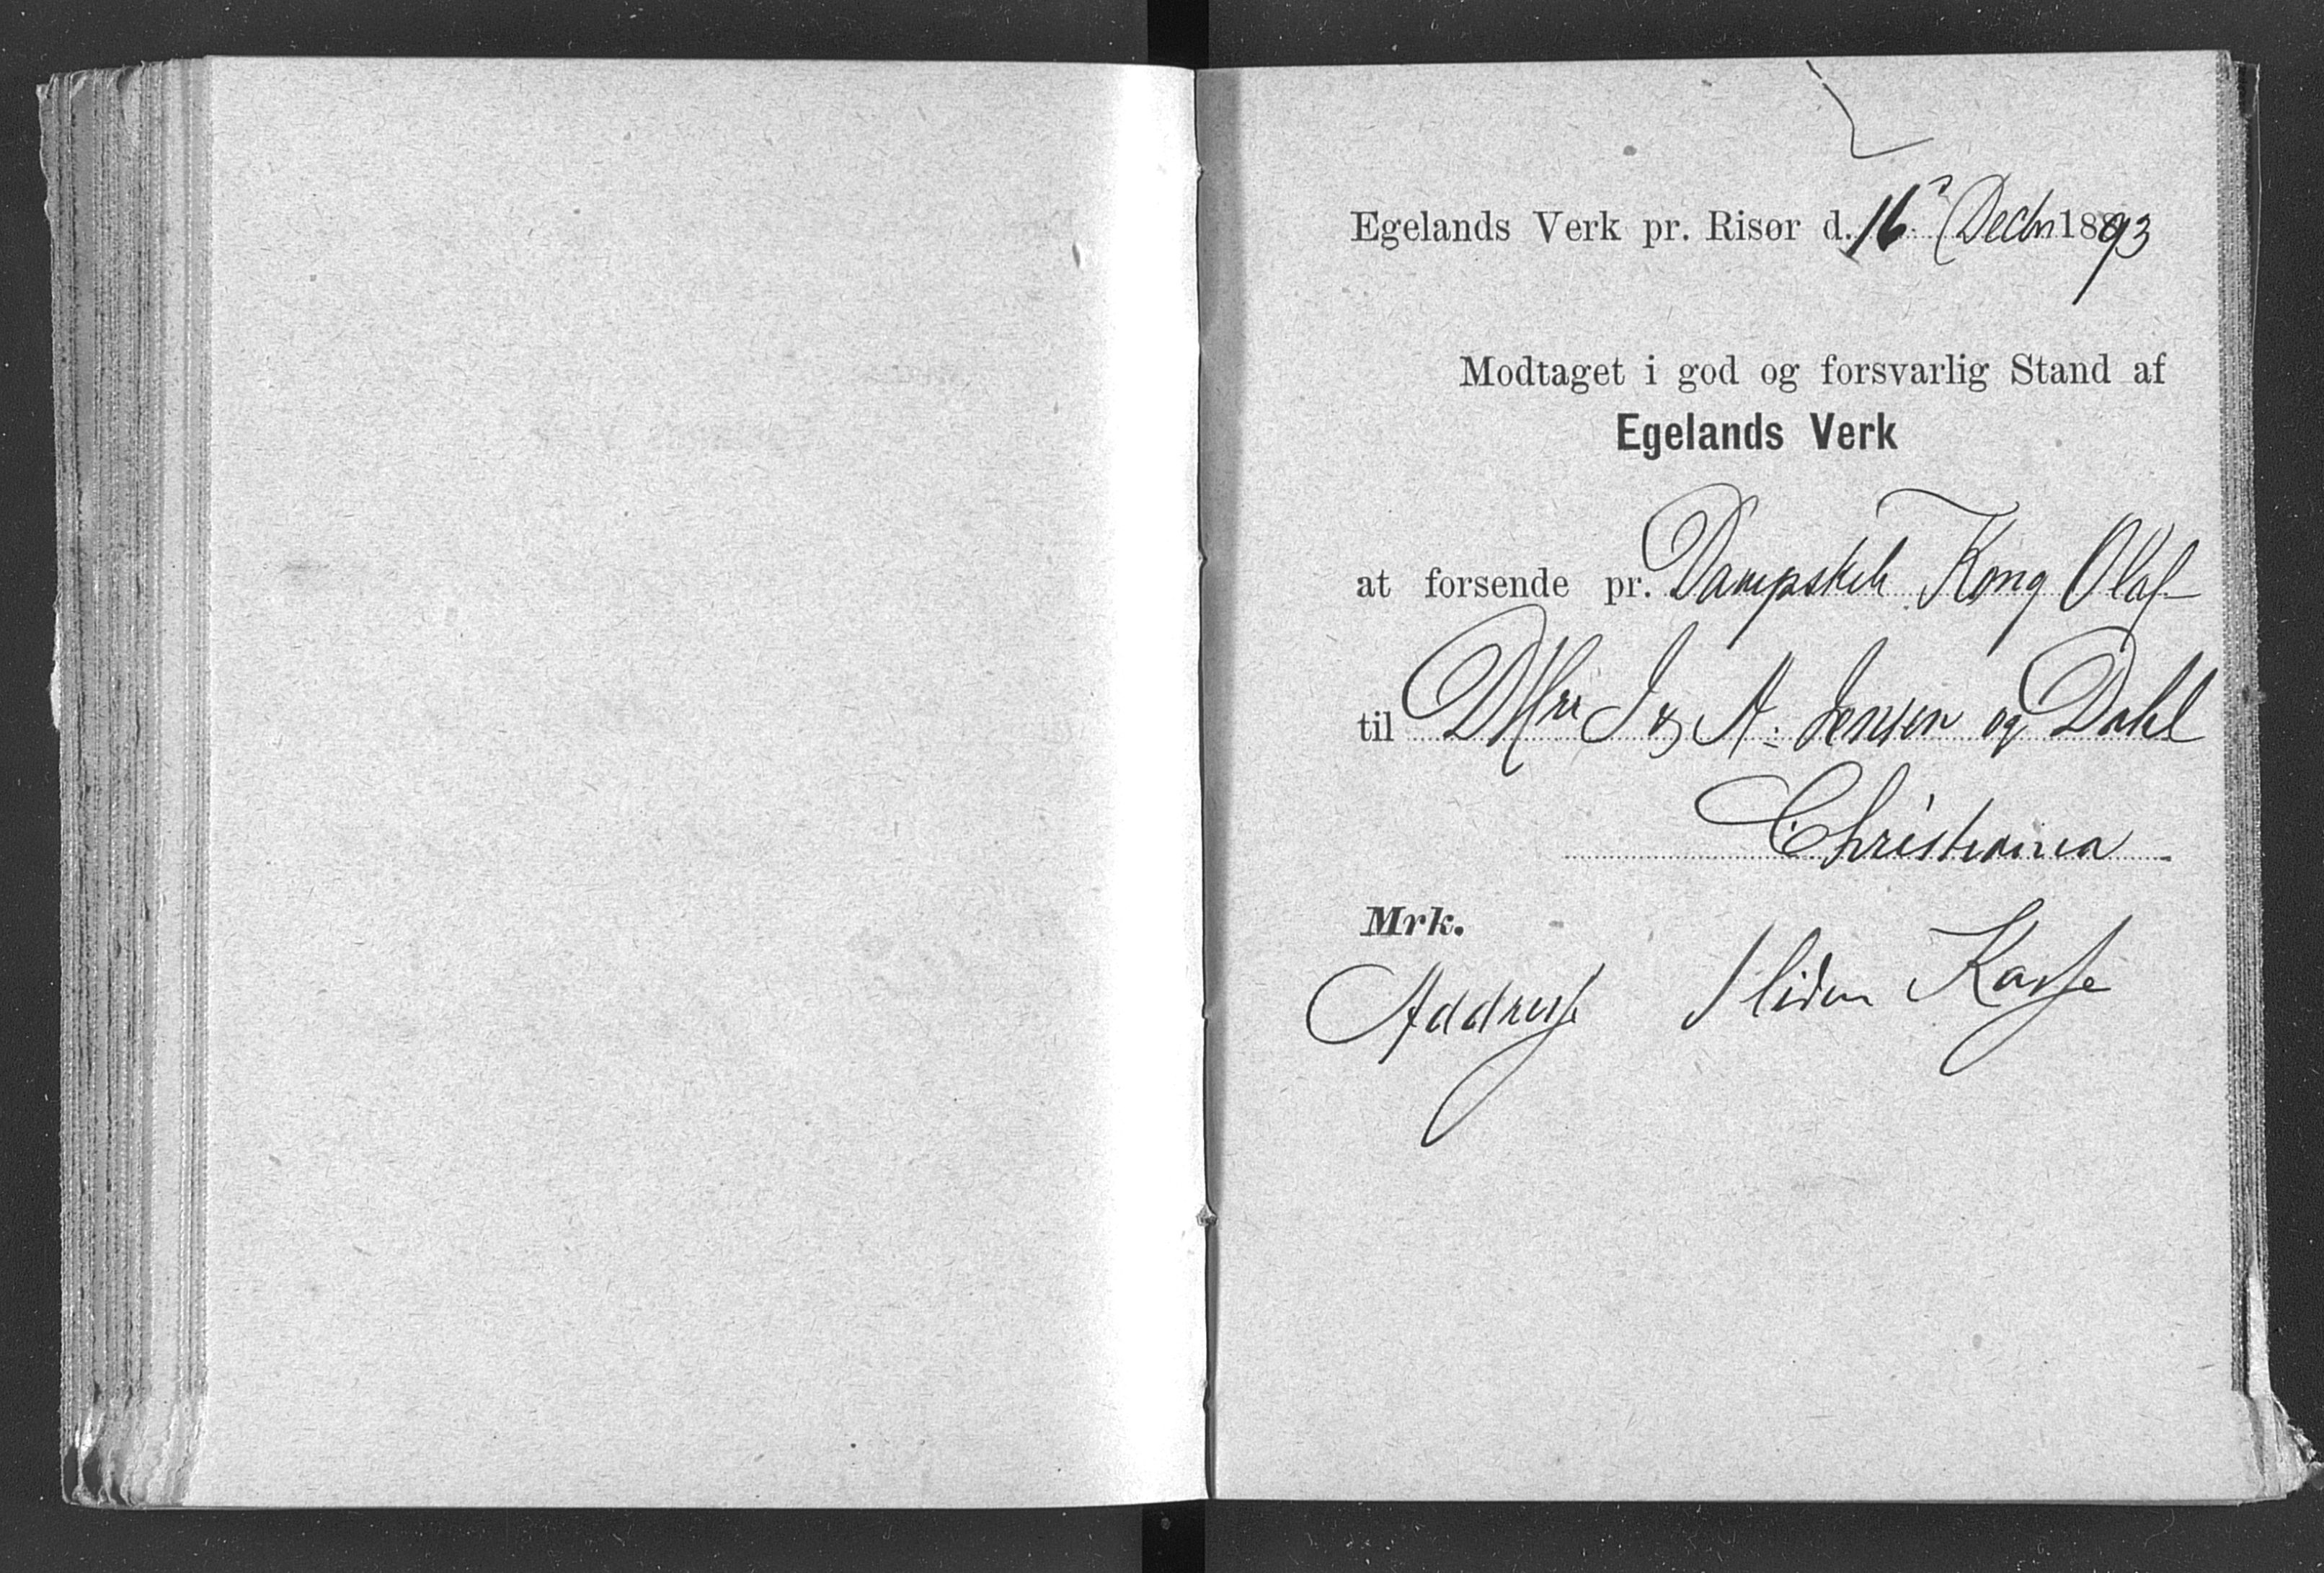 Egelands Verk pr. Risør d. 16 Decbr 1893
Modtaget i god og forsvarlig Stand af
Egelands Verk
at forsende pr. Dampskib Kong Olaf
til DHrr J & A. Jensen og Dahl
Christiania
Mrk.
Addresse 1 liden Kasse